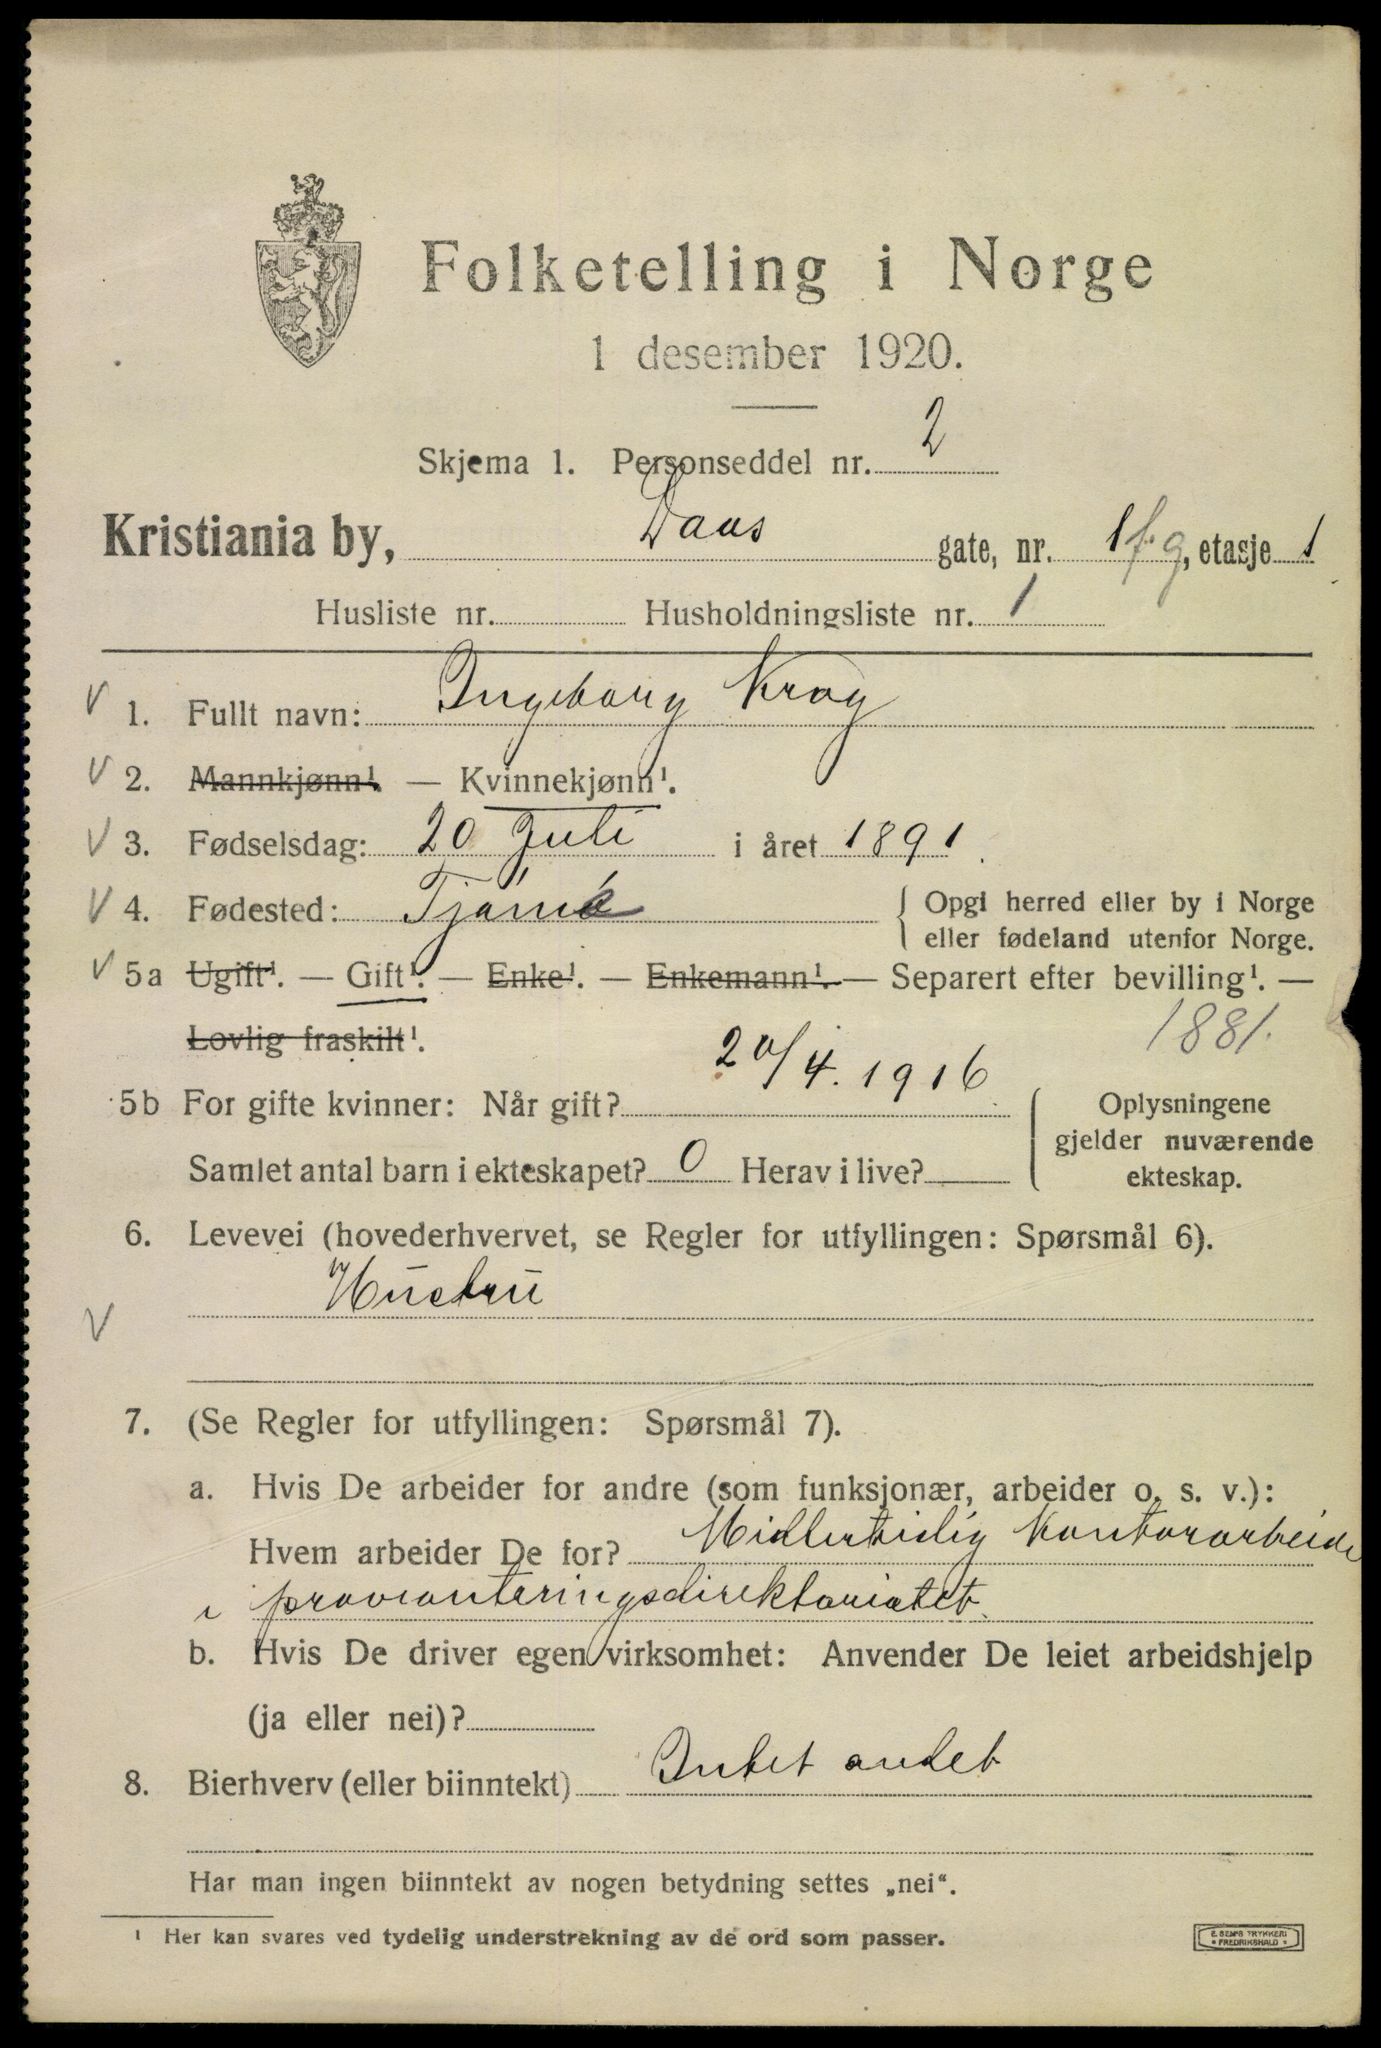 Folketelling i Norge
1 desember 1920.
Skjema 1. Personseddel nr. 2
Kristiania by, Daas gate, nr. 1 f.g, etasje 1
Husliste nr. Husholdningsliste nr. 1
V 1. Fullt navn: Ingeborg Krog
V 2. Mannkjønn¹. — Kvinnekjønn¹.
V 3. Fødselsdag: 20 Juli i året 1891.
V 4. Fødested: Tjømø { Opgi herred eller by i Norge
eller fødeland utenfor Norge.
V 5a Ugift¹. — Gift¹. — Enke¹. — Enkemann¹. — Separert efter bevilling¹. —
Lovlig fraskilt¹. 1881.
5b For gifte kvinner: Når gift? 20/4. 1916 { Oplysningene
gjelder nuværende
Samlet antal barn i ekteskapet? 0 Herav i live? ekteskap.
6. Levevei (hovederhvervet, se Regler for utfyllingen: Spørsmål 6).
V Hustru
7. (Se Regler for utfyllingen: Spørsmål 7).
a. Hvis De arbeider for andre (som funksjonær, arbeider o. s. v.):
Hvem arbeider De for? Midlertidig Kontorarbeide
i provianteringsdirektoriatet
b. Hvis De driver egen virksomhet: Anvender De leiet arbeidshjelp
(ja eller nei)?
8. Bierhverv (eller biinntekt) Intet andet
Har man ingen biinntekt av nogen betydning settes „nei“.
¹ Her kan svares ved tydelig understrekning av de ord som passer.
E. SEM'S TRYKKERI
• FREDRIKSHALD •